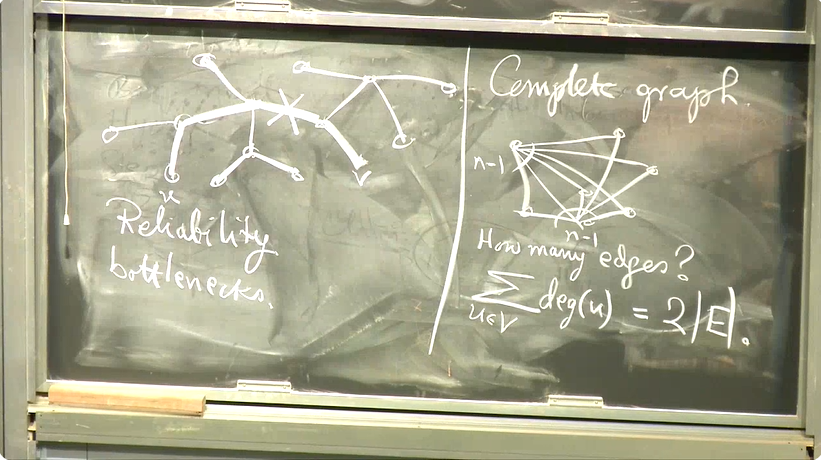 u
v
Reliability
bottlenecks.
Complete graph.
n-1
n-1
How many edges?
∑ deg(u) = 2|E|.
u∈V